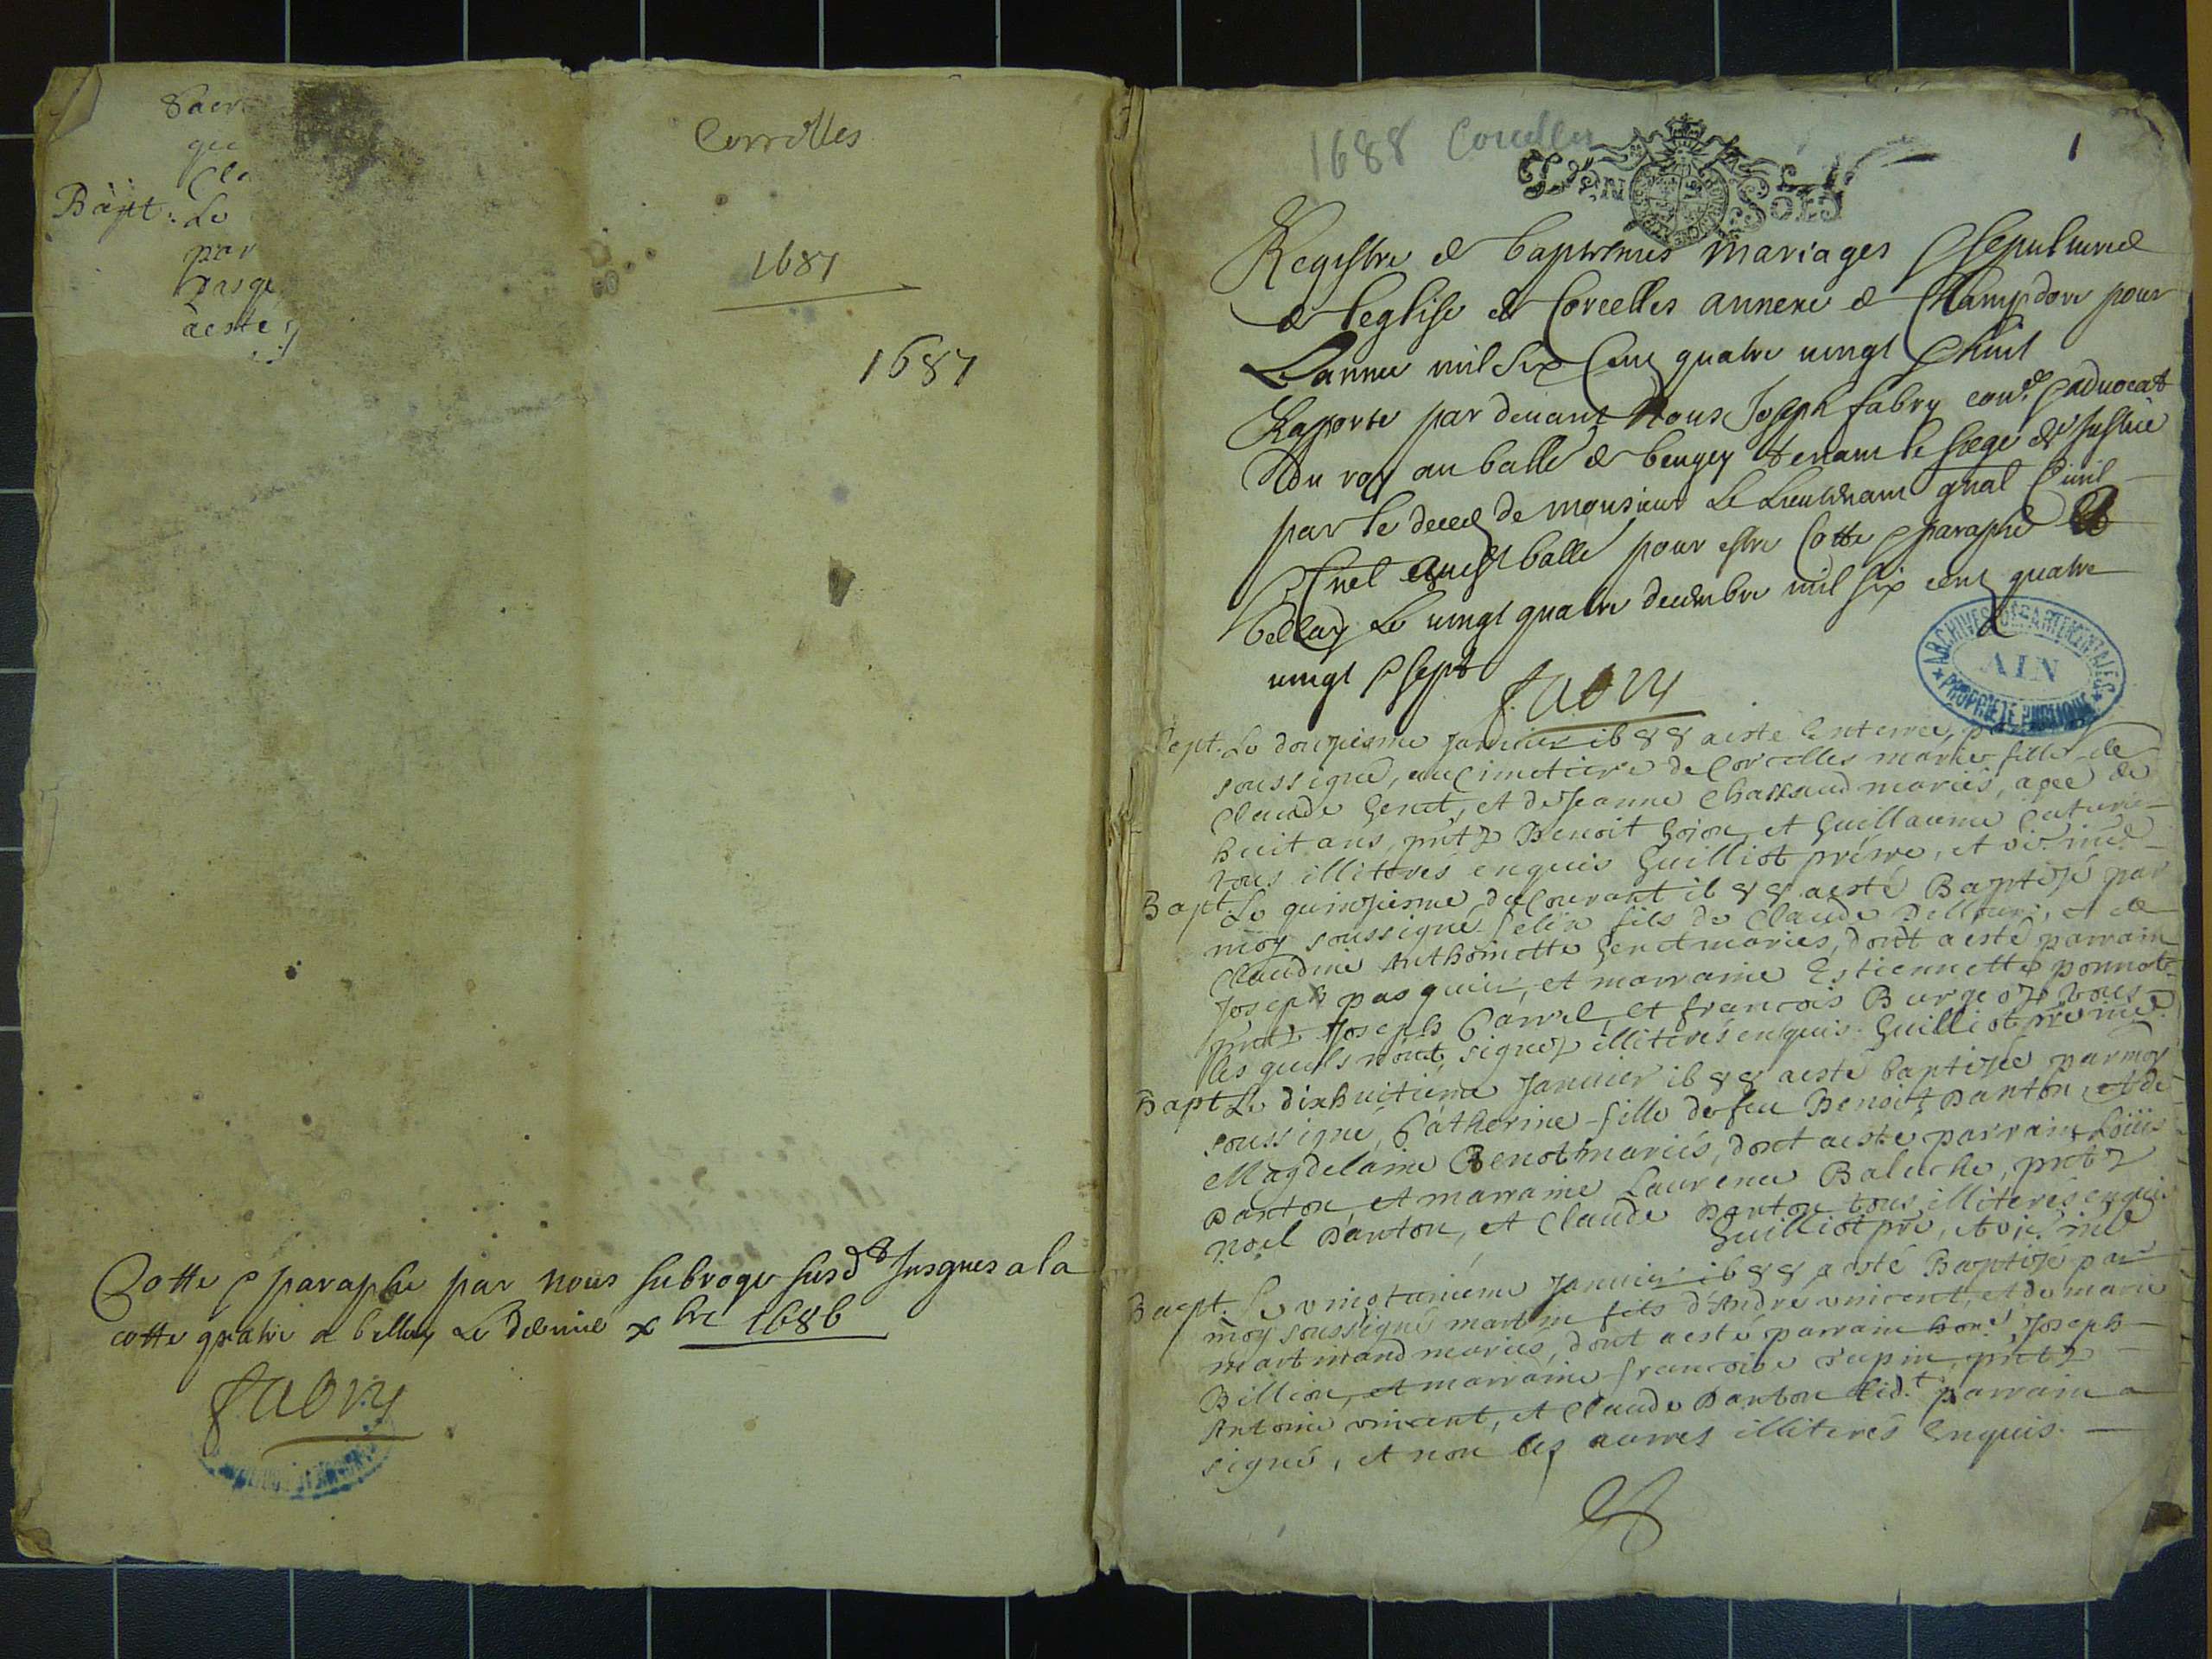 Sacr
que
Cla
Bapt. Le
par
pasqu
aesté
Corcelles
1687
1687
Cotte & paraphe par nous subroge susd jusques a la
cotte quatre a belley Le dernier xbre 1686
fabry
1688 Corcelles
1
Registre de baptesmes mariages & sepultures
de leglise de Corcelles annexe de Champdore pour
Lannee mil six Cent quatre vingt & huit
Raporte par devant Nous Joseph fabry con.er & advocat
du roy au balle de beugey tenant le siege de Justice
par le deced de monsieur Le Lieutenant gnal Civil
& Crel audit balle pour estre Cotte & paraphe A
belley Le vingt quatre decembre mil six cent quatre
vingt & sept
fabry
ARCHIVES DEPARTEMENTALES
AIN
PROPRIETE PUBLIQUE
Sept. Le douziesme janvier 1688 aesté Enterree par
soussigné, au Cimetiere de Corcelles marie fille de
Claude Genet, et de Jeanne Chassaud mariés, agee de
huit ans, pntz Benoit Gojon, et Guillaume
tous illiterés enquis Guilliot prestre, et vic. indé
Bapt. Le quinziesme du Courant 1688 aesté Baptisé par
moy soussigné felix fils de Claude et de
Claudine Anthoinette Genet mariés, dont a esté parrain
Joseph pasquier, et marraine Estiennette ponnet
pntz Joseph Carrel, et francois Burgeoz tous
les quels nont signez illiterés enquis. Guilliot pre indé
Bapt Le dixhuitieme Janvier 1688 aesté baptisée par moy
soussigné, Catherine fille de feu Benoit Danton, et de
Magdelaine Benot mariés, dont aesté parrain Loüis
Danton, et marraine Laurence Baluche, pntz
Noel Danton, et Claude Danton tous illiterés enquis
Guilliot pre, et vic. indé
Bapt. Le vingtunieme Janvier 1688 a esté Baptisé par
moy soussigné martin fils d'André vincent, et de marie
martinand mariés, dont aesté parrain hon. Joseph
Billion, et marraine francoise pntz
Antoine vincent, et Claude Danton led.t parrain a
signé, et non les autres illiterés Enquis.